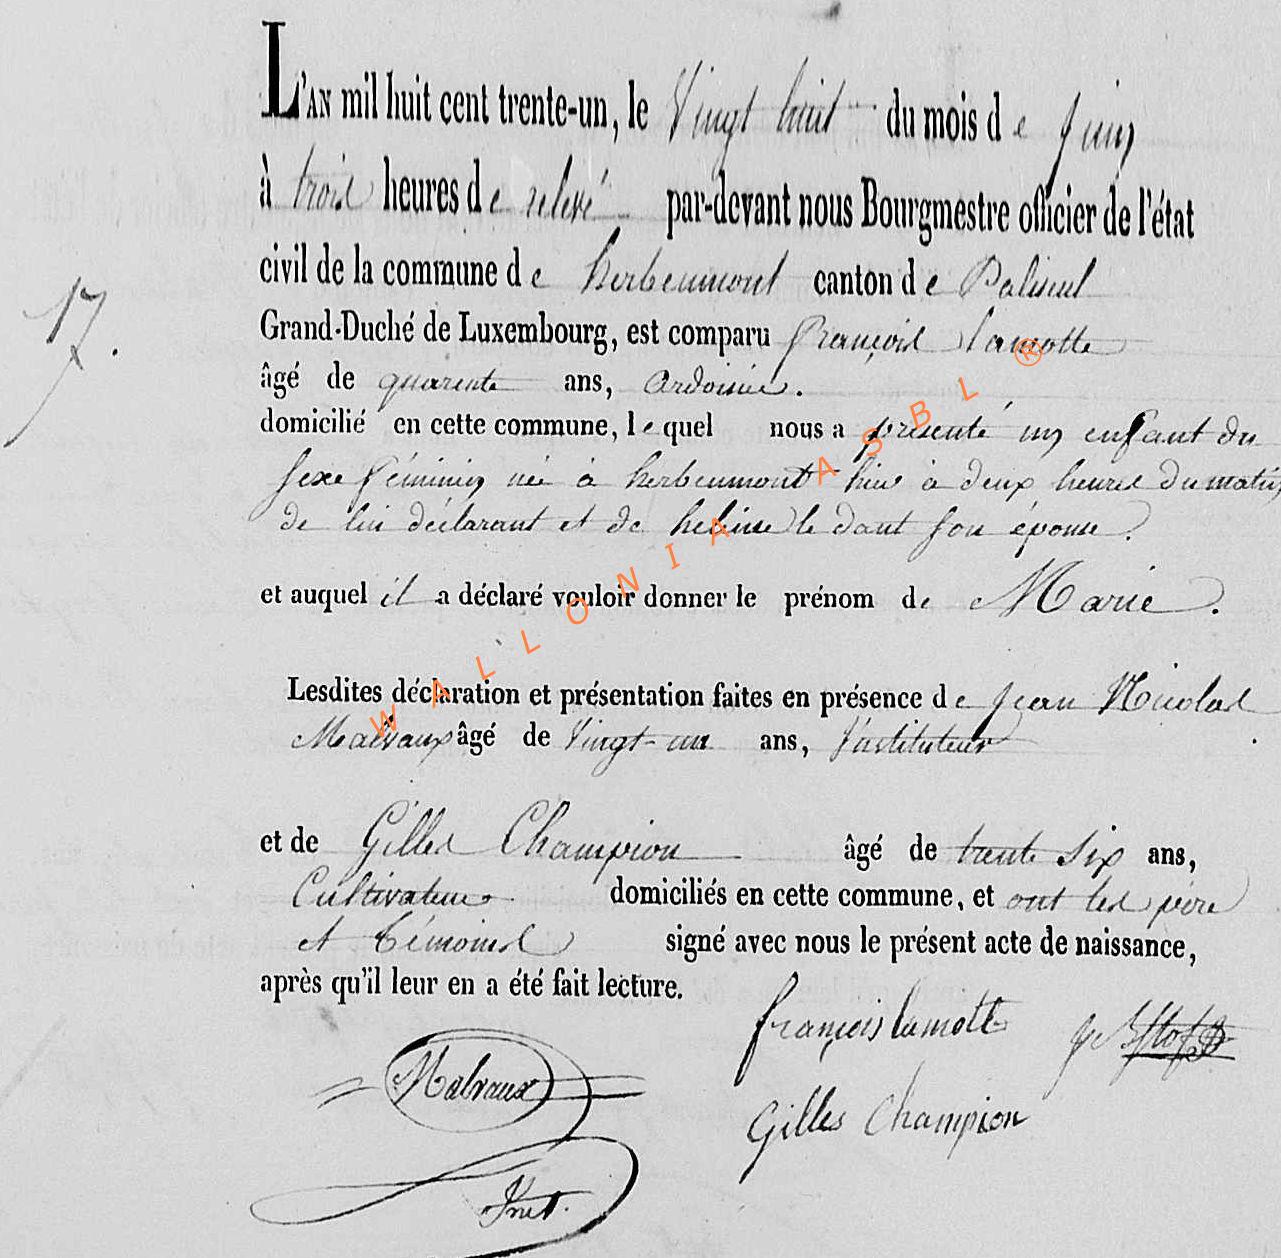 L'AN mil huit cent trente-un, le Vingt huit du mois de Juin
à trois heures de relevé par-devant nous Bourgmestre officier de l'état
civil de la commune de herbeumont canton de Paliseul
Grand-Duché de Luxembourg, est comparu françois lamotte
17.
âgé de quarente ans, Ardoisier.
domicilié en cette commune, lequel nous a présenté un enfant du
sexe féminin née à herbeumont hier à deux heures du matin
de lui déclarant et de heleine le dant son épouse.
et auquel il a déclaré vouloir donner le prénom de Marie.
Lesdites déclaration et présentation faites en présence de Jean Nicolas
Malvaux âgé de Vingt-un ans, Instituteur
et de Gilles Champion âgé de trente six ans,
Cultivateur domiciliés en cette commune, et ont les père
et témoins signé avec nous le présent acte de naissance,
après qu'il leur en a été fait lecture.
françois lamotte
Malvaux
Gilles Champion
Inst.
WALLONIA ASBL ®